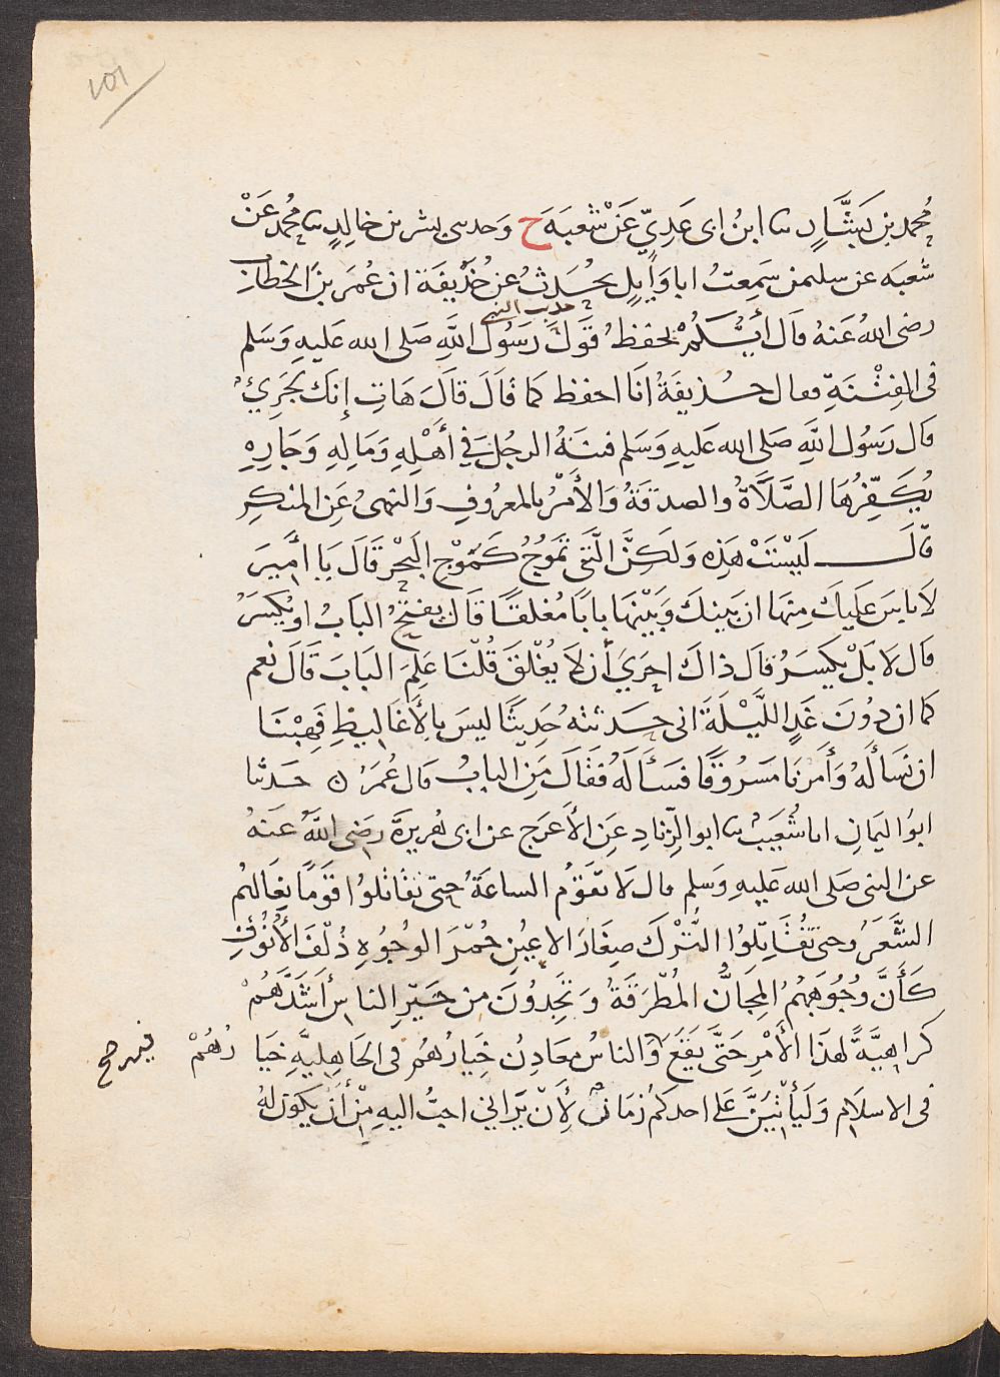 ١٥٢
مُحمد بن بَشَّارٍ سا ابنُ ابى عَدِيّ عَنْ شُعبَه ح وَحدسى بشر بن خالِدٍ سا مُحمد عَنْ
شعبَه عن سليمن سَمِعتُ ابا وَايِلٍ يُحَدِثُ عن حُذَيفَة ان عُمَر بن الخطاب
حديث النبي
رضى اللهُ عَنهُ قَال أَيُّكُمْ يحفظُ قَوَلَ رَسُول اللَّهِ صَلى الله عَليهِ وَسَلم
فى الفِتْنَةِ فقال حُذيفَةُ انَا احفظ كما قَالَ قَالَ هَاتِ إنكَ لَجَرِيءُ
قال رَسُول اللَّهِ صَلى الله عَليهِ وَسَلم فتنَةُ الرجُلِ فِي أَهْلِهِ وَمَالِهِ وَجَارِهِ
يُكَفِّرُهَا الصَّلَاةُ والصدقَةُ وَالأَمْرُ بالمعرُوفِ وَالنهىُ عَنِ المنكرِ
قَالَ لَيْسَتْ هَذِه وَلَكِنَّ الَّتى تَمُوجُ كَمَوْجِ البَحْرِ قَالَ يَا امِيرَ
لَا بَاسَ عَلَيكَ مِنهَا ان بَينكَ وَبَيْنهَا بابًا مُغلقًا قَال يفتحُ البَابُ او يُكسَرُ
قال لَا بَلْ يُكسَرُ قال ذاكَ احرَي أن لَا يُغْلَقَ قُلْنَا عَلِمَ البَابَ قَالَ نعم
كما ان دُونَ غَدٍ اللَّيْلَةَ انى حَدثتهُ حَدِيثًا ليسَ بالأَغَاليطِ فَهِبْنَا
ان نَسألَهُ وَأَمرنَا مَسرُوقًا فسَأَلهُ فقَالَ مَنِ البابُ قال عُمَرُ ن حَدثنا
ابوُ اليَمانِ انا شُعَيبٌ سا ابو الزِّنادِ عَنِ الأعرَجِ عن ابى هُريرَة رضى اللَّه عَنهُ
عن النبى صَلى الله عَليهِ وَسَلم قال لَا تقَوُم الساعَةُ حتى تقَاتلوُا قَوَمًا نِعَالهُم
الشَّعَرُ وحتى تُقَاتِلوُا التُّرْكَ صِغَارَ الاعيُنِ حُمْرَ الوجُوُهِ ذُلْفَ الأُنُوُفِ
كَأَنَّ وجُوُهَهُمُ المِجَانُّ المُطْرَقَةُ وَتَجِدوُنَ من خَيرِ الناسِ أَشَدَّهُمْ
كرَاهِيَّةً لهذَا الأَمْرِ حَتَّى يَقَعَ وَالناسُ مَعَادِنُ خِيَارُهُم فى الجَاهِليَّةِ خيَارُهُمْ
فيه صح
فى الاسلَام وَلَيأْتِيَنَّ عَلى احدكُم زمَانٌ لَأَنْ يَرَاني احبُّ اليهِ مِنْ أَن يَكوُنَ لهُ